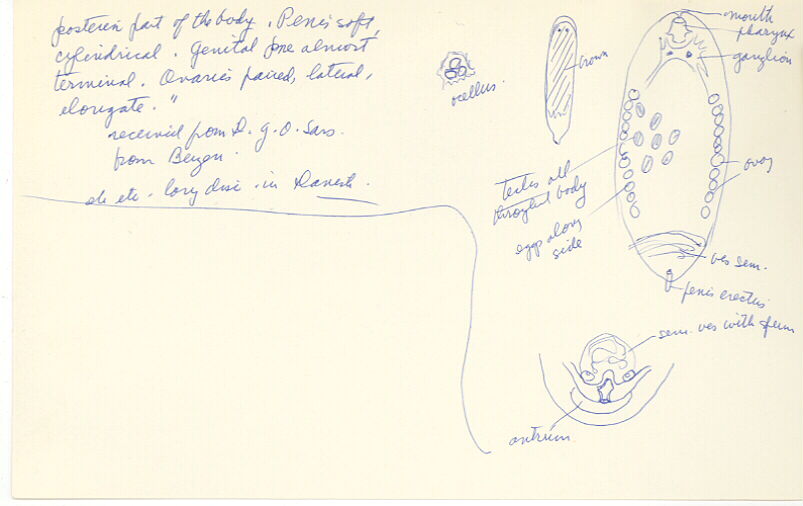 posterior part of the body. Penis soft,
cylindrical. Genital pore almost
terminal. Ovaries paired, lateral,
elongate."
received from D. G. O. Sars.
from Bergen.
etc etc. long disc. in Danish.
ocellus.
brown
mouth
pharynx
ganglion
testes all
throughout body
eggs along
side
ovary
ves sem.
penis erectus
sem. ves with sperm
antrum